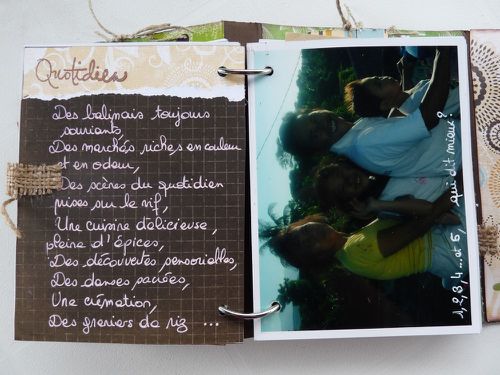 Quotidien
Des balinais toujours
souriants,
Des marchés riches en couleur
et en odeur,
Des scènes du quotidien
prises sur le vif,
Une cuisine délicieuse,
pleine d'épices,
Des découvertes sensorielles,
Des danses sacrées,
Une crémation,
Des greniers de riz ...
1, 2, 3, 4 ... et 5, qui dit mieux ?